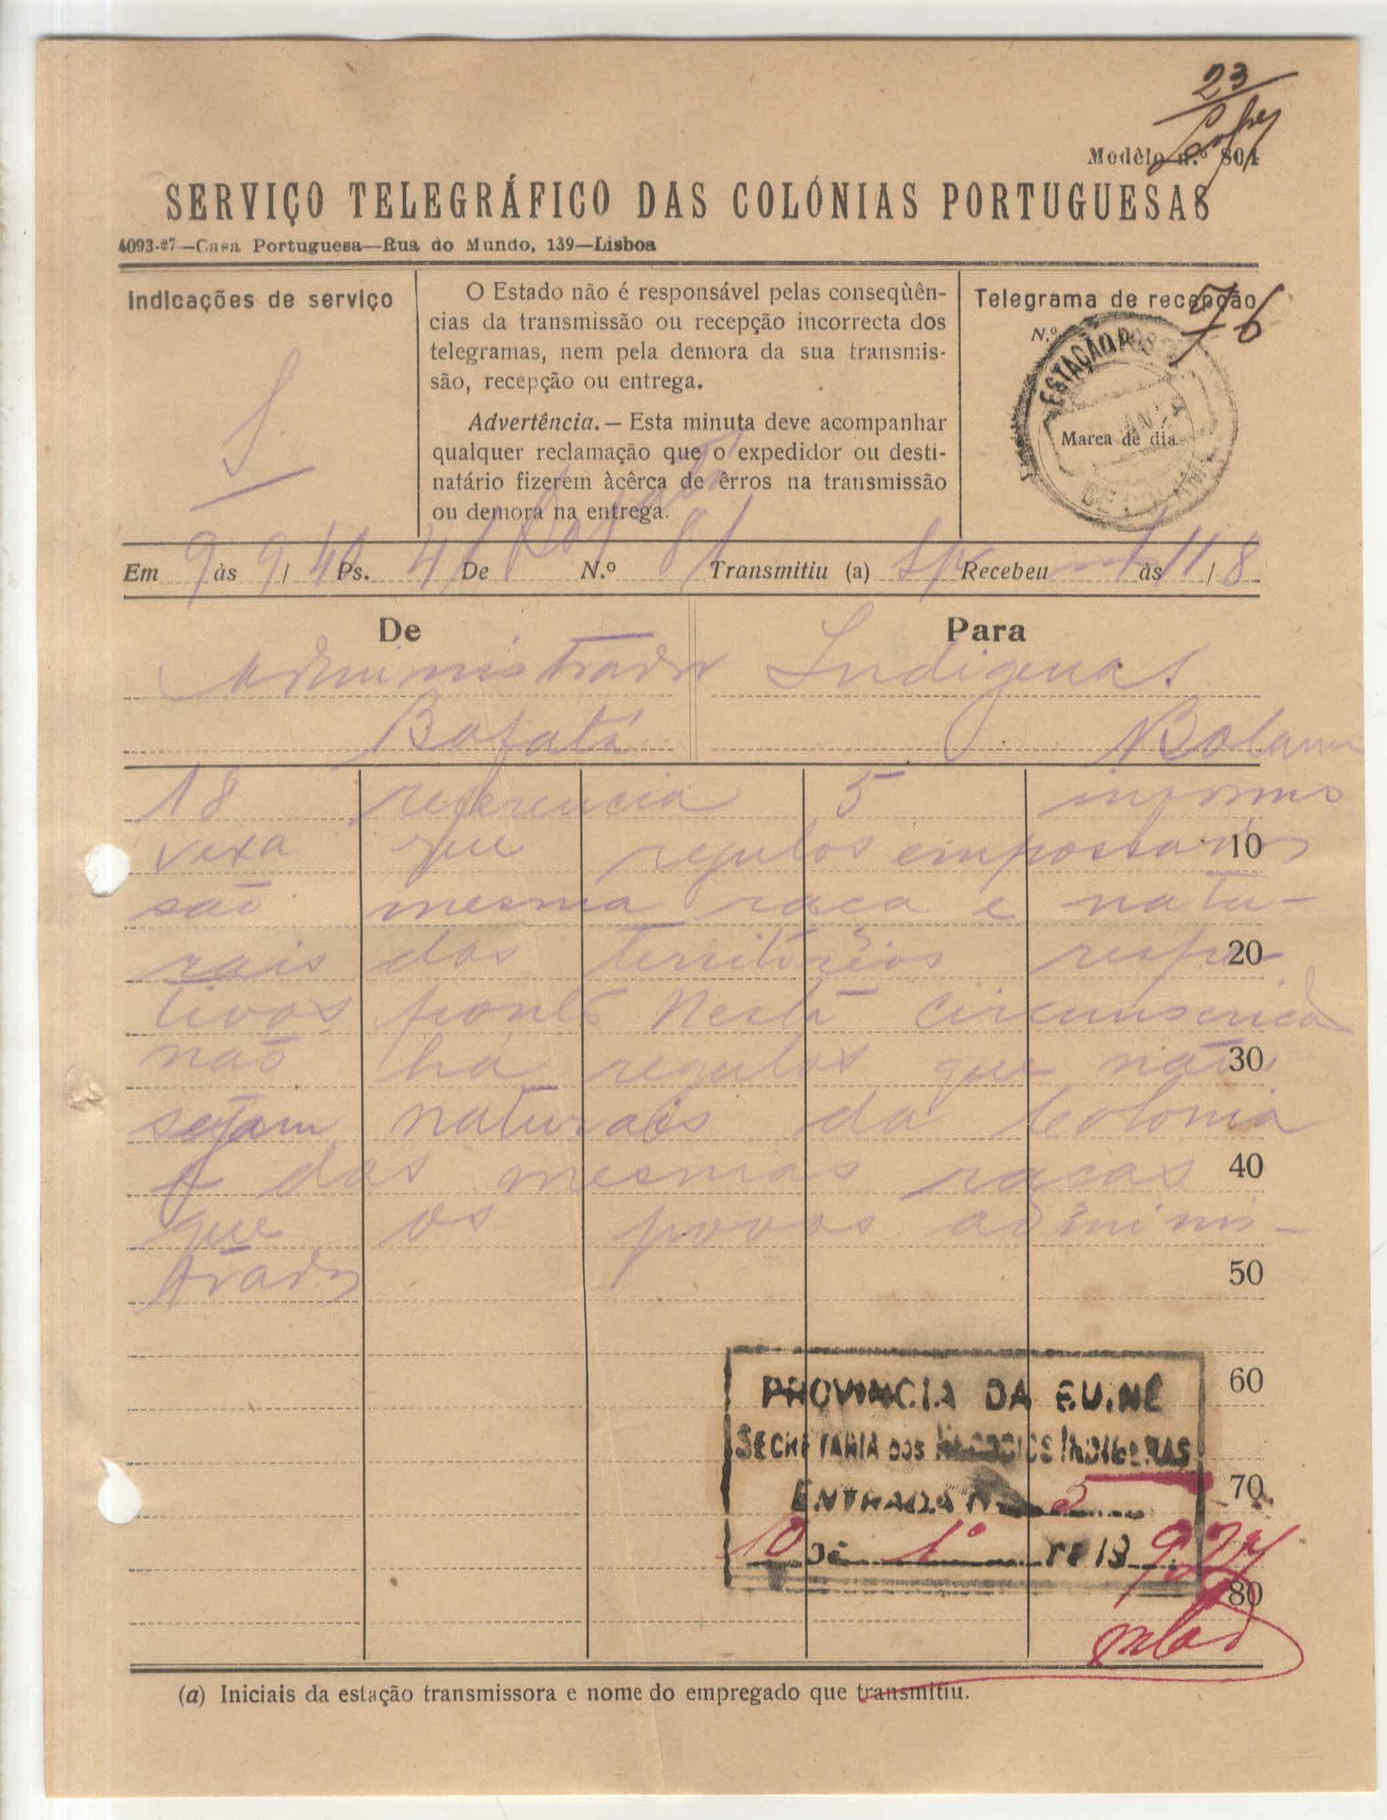 23
Modêlo n.º 804
SERVIÇO TELEGRÁFICO DAS COLÓNIAS PORTUGUESAS
4093-27—Casa Portuguesa—Rua do Mundo, 139—Lisboa
Indicações de serviço
O Estado não é responsável pelas conseqùên-
cias da transmissão ou recepção incorrecta dos
telegramas, nem pela demora da sua transmis-
são, recepção ou entrega.
Advertência.—Esta minuta deve acompanhar
qualquer reclamação que o expedidor ou desti-
natário fizerem àcêrca de êrros na transmissão
ou demora na entrega.
Telegrama de recepção
N.º 76
ESTAÇÃO
Marca de dia
S
Em 9 às 9 / 40 Ps. 41 De N.º 81 Transmitiu (a) Recebeu às 11 / 8
De
Para
Administrador
Indigenas
Bafatá
Bolama
18 referencia 5 informo
vexa que regulos empossados
são mesma raca e natu-
rais dos territórios respe
tivos ponto Nesta circunscrica
não há regulos que não
sejam naturais da Colonia
e das mesmas racas
que os povos adminis-
trados
10
20
30
40
50
60
70
80
PROVINCIA DA GUINÉ
SECRETARIA DOS NEGOCIOS INDIGENAS
ENTRADA N. 5
10 DE 1º DE 19 927
(a) Iniciais da estação transmissora e nome do empregado que transmitiu.